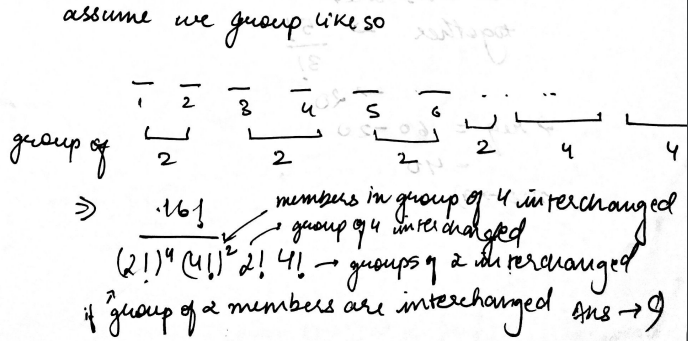 assume we group like so
1 2 3 4 5 6 . . ..
group of 2 2 2 2 4 4
⇒ 16! members in group of 4 interchanged
→ group of 4 interchanged
(2!)⁴ (4!)² 2! 4! → groups of 2 interchanged
if group of 2 members are interchanged Ans → 9